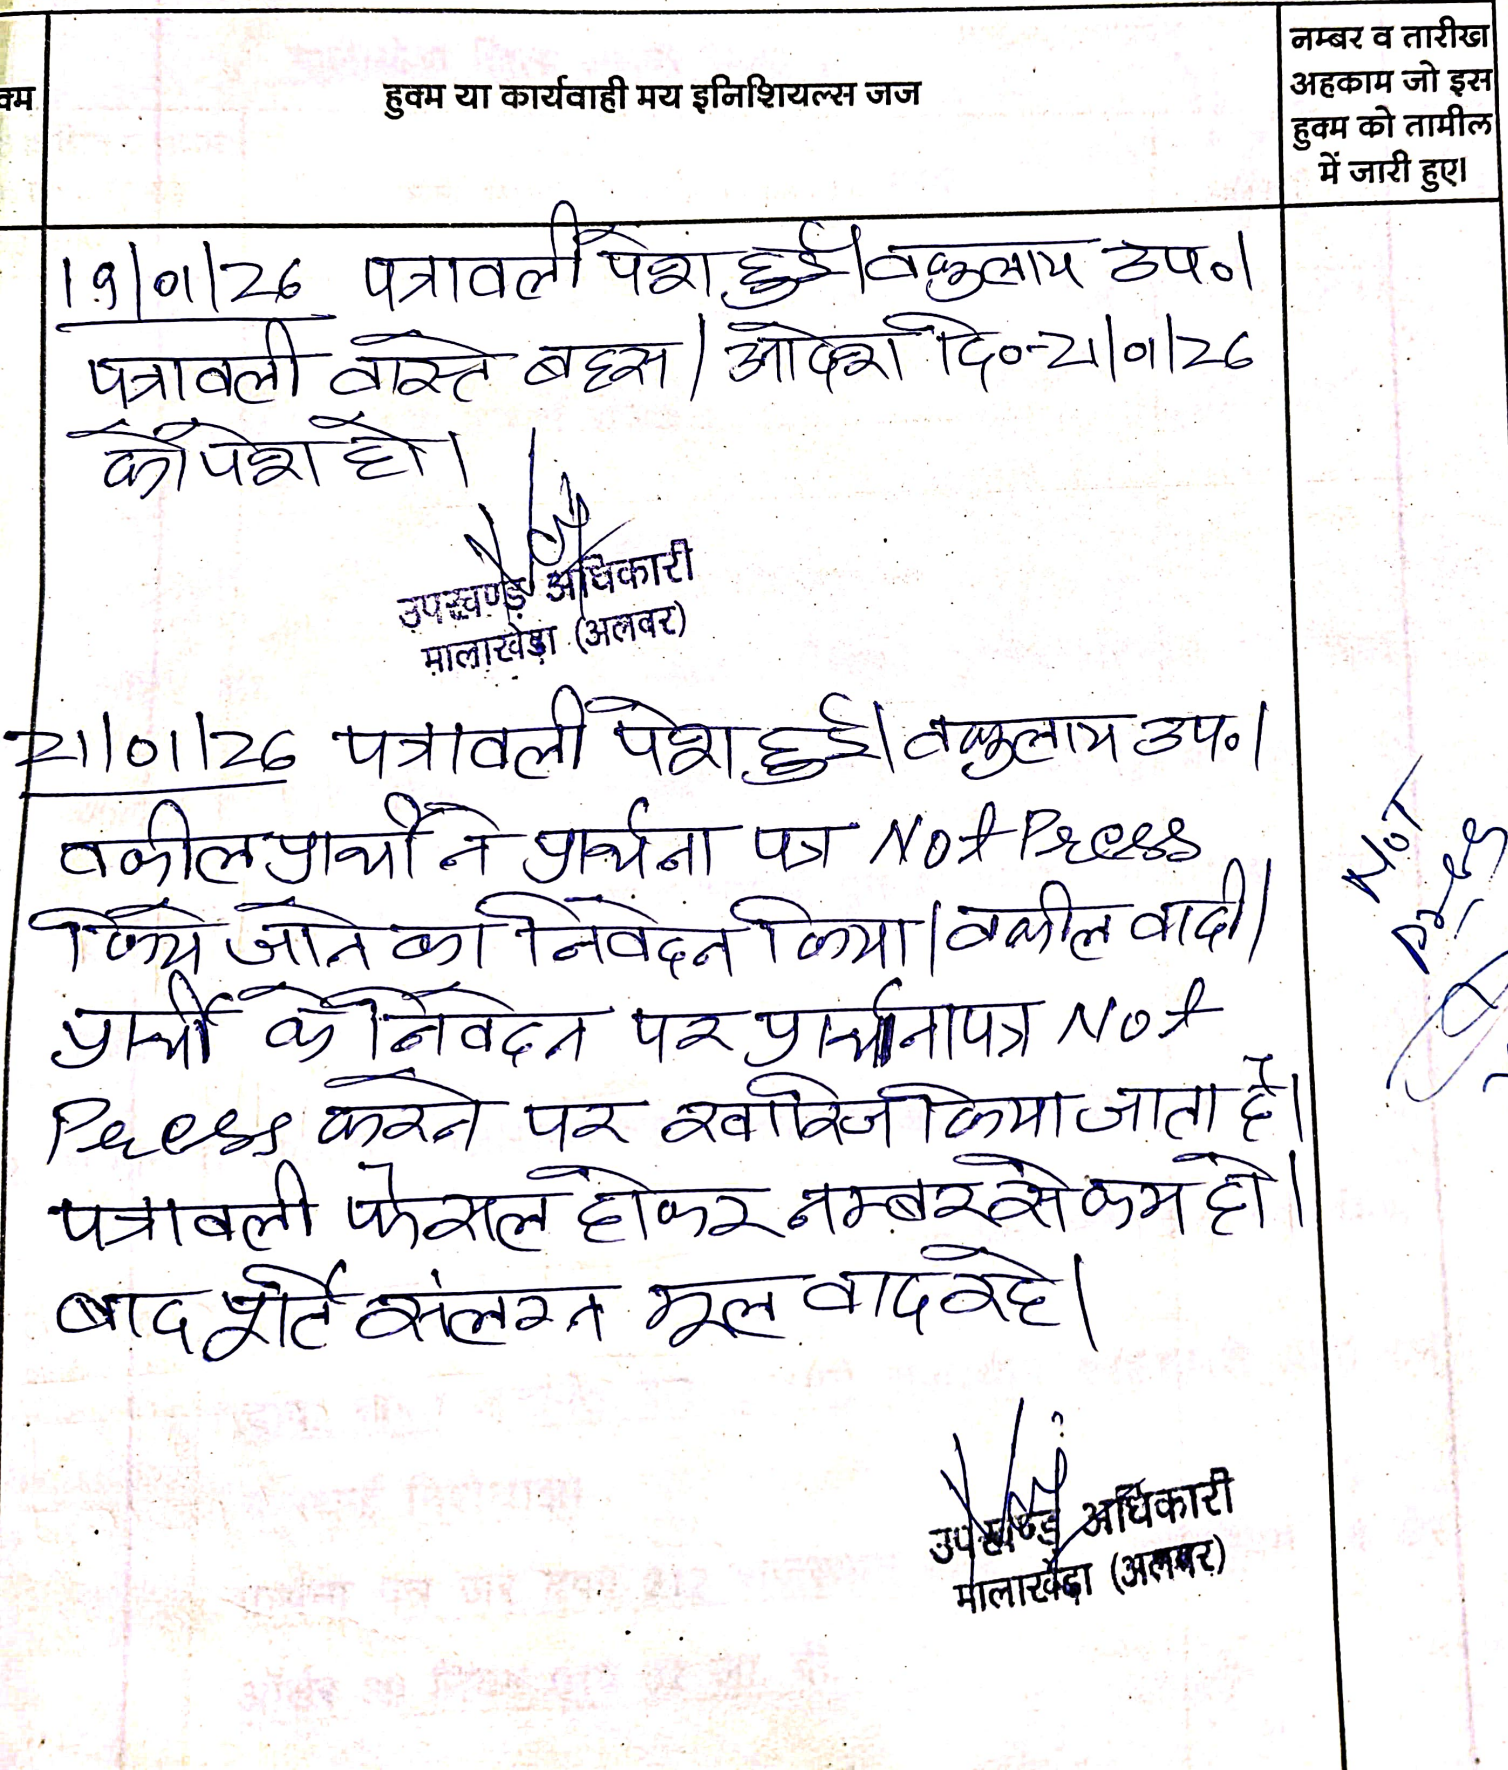 क्म
हुक्म या कार्यवाही मय इनिशियल्स जज
नम्बर व तारीख
अहकाम जो इस
हुक्म को तामील
में जारी हुए।
19/01/26 पत्रावली पेश हुई। वकुलाय उप०।
पत्रावली वास्ते बहस / आदेश दि०-21/01/26
को पेश हो।
उपखण्ड अधिकारी
मालाखेड़ा (अलवर)
21/01/26 पत्रावली पेश हुई। वकुलाय उप०।
वकील प्रार्थी ने प्रार्थना पत्र Not Press
किये जाने का निवेदन किया। वकील वादी/
प्रार्थी के निवेदन पर प्रार्थनापत्र Not
Press करने पर खारिज किया जाता है।
पत्रावली फैसल होकर नम्बर से कम हो।
बाद पूर्ति संलग्न मूल वाद रहे।
Not
Press
उपखण्ड अधिकारी
मालाखेड़ा (अलवर)